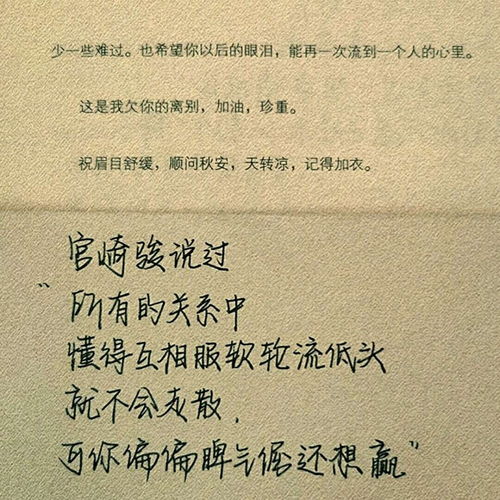 少一些难过。也希望你以后的眼泪，能再一次流到一个人的心里。
这是我欠你的离别，加油，珍重。
祝眉目舒缓，顺问秋安，天转凉，记得加衣。
宫崎骏说过
“所有的关系中
懂得互相服软轮流低头
就不会走散，
可你偏偏脾气倔还想赢”